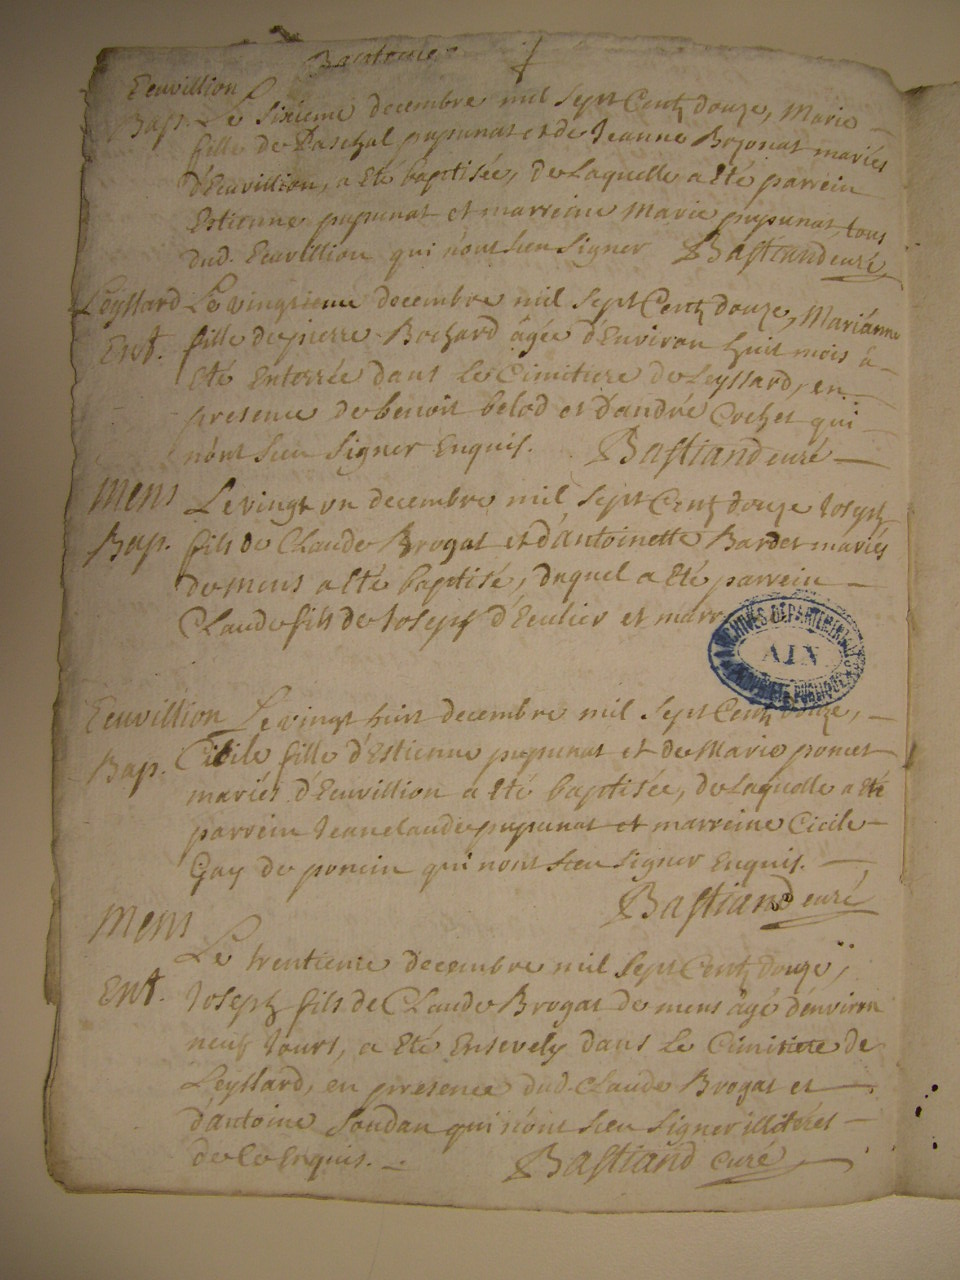 Ecuvillion
Bap. Le sixieme decembre mil sept Centz douze, Marie
fille de Paschal pupunat et de Jeanne Brogat mariés
d'Ecuvillion, a Eté baptisée, de Laquelle a Eté parrein
Estienne pupunat et marreine Marie pupunat, tous
dud. Ecuvillion qui n'ont sceu signer Bastiand curé
Leyssard Le vingtieme decembre mil sept Centz douze, Marianne
Ent. fille de pierre Bochard âgée d'Environ huit mois a
Eté Enterrée dans Le Cimitiere de Leyssard, en
presence de benoit belod et d'andré Cochet qui
n'ont sceu signer Enquis. Bastiand curé
Mens Le vingt un decembre mil sept Centz douze Joseph
Bap. fils de Claude Brogat et d'antoinette Bardet mariés
de mens a Eté baptisé, duquel a Eté parrein
Claude fils de Joseph d'Eculier et marr
ARCHIVES DEPARTEMENTALES
AIN
PROPRIETE PUBLIQUE
Ecuvillion Le vingt huit decembre mil sept Centz douze,
Bap. Cicile fille d'Estienne pupunat et de Marie poncet
mariés d'Ecuvillion a Eté baptisée, de Laquelle a Eté
parrein Jeanclaude pupunat et marreine Cicile
Gay de poncin qui n'ont sceu signer Enquis.
Bastiand curé
Mens
Le trentieme decembre mil sept Centz douze,
Ent. Joseph fils de Claude Brogat de mens âgé d'environ
neuf Jours, a Eté Ensevely dans Le Cimitiere de
Leyssard, en presence dud. Claude Brogat et
d'antoine Soudan qui n'ont sceu signer illiterés
de ce Enquis. Bastiand curé